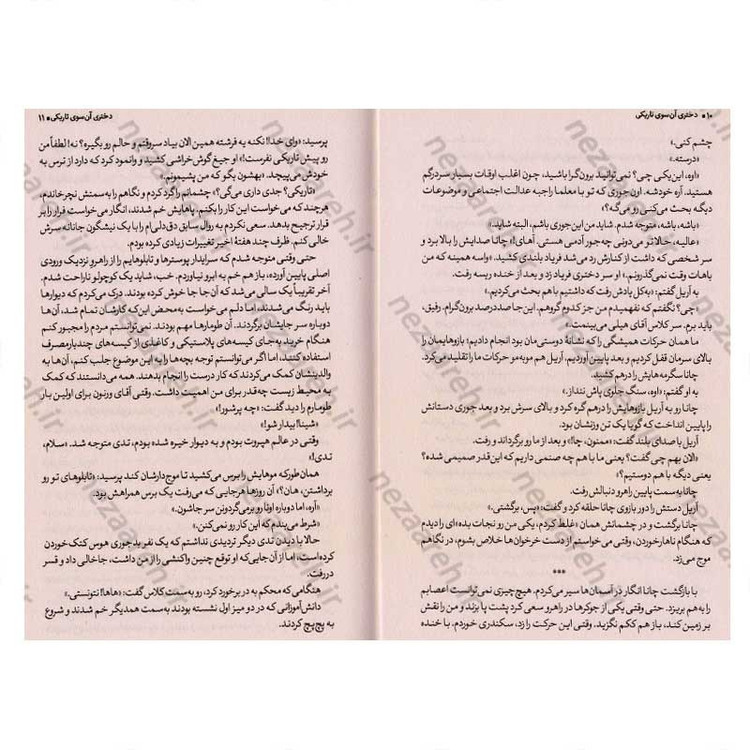 ۱۰ • دختری آن‌سوی تاریکی
چشم کنی.»
«درسته.»
«اوه، این‌یکی چی؟ نمی‌توانید برون‌گرا باشید، چون اغلب اوقات بسیار سردرگم
هستید. آره خودشه. اون‌جوری که تو با معلما راجبه عدالت اجتماعی و موضوعات
دیگه بحث می‌کنی رو می‌گه؟»
«باشه، باشه، متوجه شدم. شاید من این‌جوری باشم، البته شاید.»
«عالیه، حالا تو می‌دونی چه‌جور آدمی هستی. آهای!» چانا صدایش را بالا برد و
سر شخصی که داشت از کنارش رد می‌شد فریاد بلندی کشید. «واسه همینه که من
باهات وقت نمی‌گذرونم.» او سر دختری فریاد زد و بعد از خنده ریسه رفت.
به آریل گفتم: «به‌کل یادش رفت که داشتیم با هم بحث می‌کردیم.»
«چی؟ نگفتم که نفهمیدم من جز کدوم گروهم. این‌جا صددرصد برون‌گرام. رفیق،
باید برم. سر کلاس آقای هیلی می‌بینمت.»
ما همان حرکات همیشگی را که نشانهٔ دوستی‌مان بود انجام دادیم؛ بازوهایمان را
بالای سرمان قفل کردیم و بعد پایین آوردیم. آریل هم موبه‌مو حرکات ما را تقلید می‌کرد.
چانا سگرمه‌هایش را درهم کشید.
به او گفتم: «اوه، سنگ جلوی پاش ننداز.»
چانا رو به آریل بازوهایش را درهم گره کرد و بالای سرش برد و بعد جوری دستانش
را پایین انداخت که گویا یک تن وزنشان بود.
آریل با صدای بلند گفت: «ممنون، چانا!» و بعد از ما رو برگرداند و رفت.
«الان بهم چی گفت؟ یعنی ما با هم چه صنمی داریم که این‌قدر صمیمی شده؟
یعنی دیگه با هم دوستیم؟»
چانا به‌سمت پایین راهرو دنبالش رفت.
آریل دستش را دور بازوی چانا حلقه کرد و گفت: «پس، برگشتی.»
چانا برگشت و در چشمانش همان «غلط کردم، یکی من رو نجات بده»ای را دیدم
که هنگام ناهارخوردن، وقتی می‌خواستم از دست خرخوان‌ها خلاص بشوم، در نگاهم
موج می‌زد.
***
با بازگشت چانا انگار در آسمان‌ها سیر می‌کردم. هیچ‌چیزی نمی‌توانست اعصابم
را به‌هم بریزد. حتی وقتی یکی از جوکرها در راهرو سعی کرد پشت پا بزند و من را نقش
بر زمین کند، باز هم ککم نگزید. وقتی این حرکت را زد، سکندری خوردم. با خنده
دختری آن‌سوی تاریکی • ۱۱
پرسید: «وای خدا! نکنه یه فرشته همین الان بیاد سروقتم و حالم رو بگیره؟ نه! لطفاً من
رو پیش تاریکی نفرست!» او جیغ گوش‌خراشی کشید و وانمود کرد که دارد از ترس به
خودش می‌پیچد. «بهشون بگو که من پشیمونم.»
«تاریکی؟ جدی داری می‌گی؟» چشمانم را گرد کردم و نگاهم را به‌سمتش نچرخاندم،
هرچند که می‌خواست این کار را بکنم. پاهایش خم شدند، انگار می‌خواست فرار را بر
قرار ترجیح بدهد. سعی نکردم به روال سابق دق‌دلی‌ام را با یک نیشگون جانانه سرش
خالی کنم. ظرف چند هفتهٔ اخیر تغییرات زیادی کرده بودم.
حتی وقتی متوجه شدم که سرایدار پوسترها و تابلوهایم را از راهروِ نزدیک ورودی
اصلی پایین آورده، باز هم خم به ابرو نیاوردم. خب، شاید یک کوچولو ناراحت شدم.
آخر تقریباً یک سالی می‌شد که آن‌جا جا خوش کرده بودند. درک می‌کردم که دیوارها
باید رنگ می‌شدند، اما دلم می‌خواست به‌محض این‌که کارشان تمام شد، آن‌ها
دوباره سر جایشان برگردند. آن طومارها مهم بودند. نمی‌توانستم مردم را مجبور کنم
هنگام خرید به‌جای کیسه‌های پلاستیکی و کاغذی از کیسه‌های چندبارمصرف
استفاده کنند، اما اگر می‌توانستم توجه بچه‌ها را به این موضوع جلب کنم، آن‌ها به
والدینشان کمک می‌کردند که کار درست را انجام بدهند. همه می‌دانستند که کمک
به محیط زیست چه‌قدر برای من اهمیت داشت. وقتی آقای ورنون برای اولین بار
طومارم را دید گفت: «چه پرشور!»
«شینا! بیدار شو!»
وقتی در عالم هپروت بودم و به دیوار خیره شده بودم، تدی متوجه شد. «سلام،
تدی!»
همان‌طور که موهایش را برس می‌کشید تا موج‌دارشان کند پرسید: «تابلوهای تو رو
برداشتن، هان؟» آن روزها هرجایی که می‌رفت یک برس همراهش بود.
«آره، اما دوباره اونا رو برمی‌گردونن سر جاشون.»
«شرط می‌بندم که این کار رو نمی‌کنن.»
حالا با دیدن تدی دیگر تردیدی نداشتم که یک نفر بدجوری هوس کتک‌خوردن
کرده است، اما از آن جایی‌که او توقع چنین واکنشی را از من داشت، جاخالی داد و قسر
دررفت.
هنگامی که محکم به در برخورد کرد، رو به‌سمت کلاس گفت: «هاها! نتونستی.»
دانش‌آموزانی که در دو میز اول نشسته بودند به‌سمت همدیگر خم شدند و شروع
به پچ‌پچ کردند.
nezaareh.ir